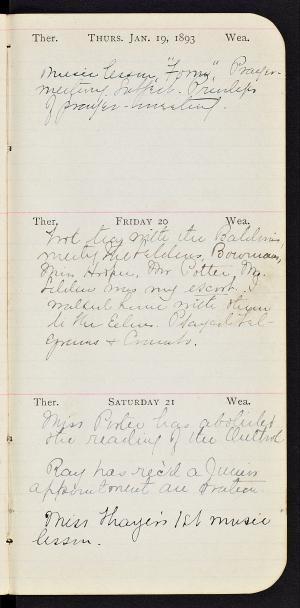 Ther. THURS. JAN. 19, 1893 Wea.
Music lesson, "Form," Prayer-
meeting. Subject - Privileges
of prayer-meeting.
Ther. FRIDAY 20 Wea.
took tea with the Baldwins,
meeting the Seldens, Bowmans,
Miss Hooker, Mr Potter, Mr.
Selden was my escort.
walked home with them
to the Eelms. Played
& Crambo.
Ther. SATURDAY 21 Wea.
Miss Porter has abolished
the reading of the Outlook
Ray has rec'd a Junior
appointment an oration
Miss Thayer's 1st music
lesson.